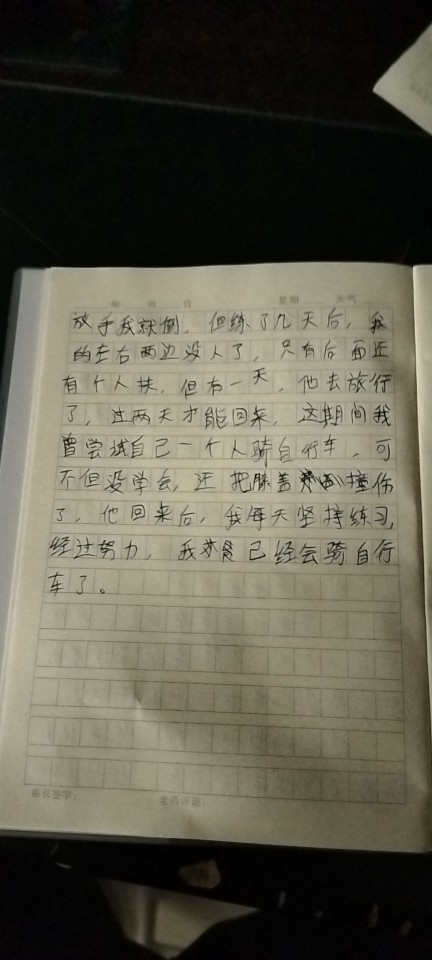 年 月 日 星期 天气
放手我就倒，但练了几天后，我
的左右两边没人了，只有后面还
有个人扶，但有一天，他去旅行
了，过两天才能回来，这期间我
曾尝试自己一个人骑自行车，可
不但没学会，还把膝盖撞伤
了，他回来后，我每天坚持练习，
经过努力，我已经会骑自行
车了。
家长签字： 老师评语：